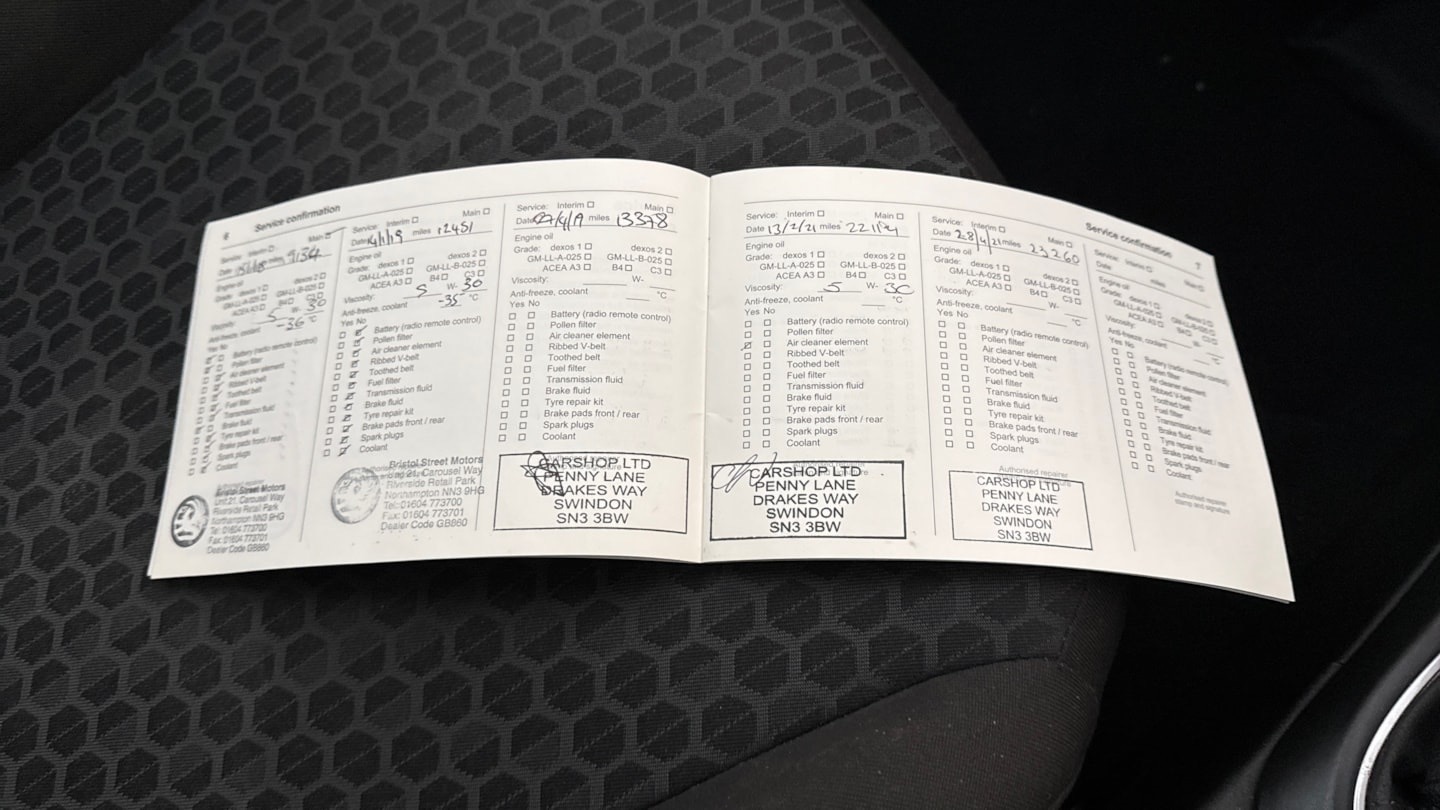 6 Service confirmation
Service: Interim ☐ Main ☐
Date miles 9134
Engine oil
Grade: dexos 1 ☐ dexos 2 ☐
GM-LL-A-025 ☐ GM-LL-B-025 ☐
ACEA A3 ☐ B4 ☐ C3 ☐
Viscosity: 5 W- 30
Anti-freeze, coolant -36 °C
Yes No
Battery (radio remote control)
Pollen filter
Air cleaner element
Ribbed V-belt
Toothed belt
Fuel filter
Transmission fluid
Brake fluid
Tyre repair kit
Brake pads front / rear
Spark plugs
Coolant
Authorised repairer
Bristol Street Motors
Unit 21, Carousel Way
Riverside Retail Park
Northampton NN3 9HG
Tel: 01604 773700
Fax: 01604 773701
Dealer Code GB860
Service: Interim ☐ Main ☐
Date 14/1/19 miles 12451
Engine oil
Grade: dexos 1 ☐ dexos 2 ☐
GM-LL-A-025 ☐ GM-LL-B-025 ☐
ACEA A3 ☐ B4 ☐ C3 ☐
Viscosity: 5 W- 30
Anti-freeze, coolant -35 °C
Yes No
Battery (radio remote control)
Pollen filter
Air cleaner element
Ribbed V-belt
Toothed belt
Fuel filter
Transmission fluid
Brake fluid
Tyre repair kit
Brake pads front / rear
Spark plugs
Coolant
Bristol Street Motors
21, Carousel Way
Riverside Retail Park
Northampton NN3 9HG
Tel: 01604 773700
Fax: 01604 773701
Dealer Code GB860
Service: Interim ☐ Main ☐
Date miles 13378
Engine oil
Grade: dexos 1 ☐ dexos 2 ☐
GM-LL-A-025 ☐ GM-LL-B-025 ☐
ACEA A3 ☐ B4 ☐ C3 ☐
Viscosity: W-
Anti-freeze, coolant °C
Yes No
Battery (radio remote control)
Pollen filter
Air cleaner element
Ribbed V-belt
Toothed belt
Fuel filter
Transmission fluid
Brake fluid
Tyre repair kit
Brake pads front / rear
Spark plugs
Coolant
CARSHOP LTD
PENNY LANE
DRAKES WAY
SWINDON
SN3 3BW
Service: Interim ☐ Main ☐
Date 13/2/21 miles
Engine oil
Grade: dexos 1 ☐ dexos 2 ☐
GM-LL-A-025 ☐ GM-LL-B-025 ☐
ACEA A3 ☐ B4 ☐ C3 ☐
Viscosity: 5 W- 30
Anti-freeze, coolant °C
Yes No
Battery (radio remote control)
Pollen filter
Air cleaner element
Ribbed V-belt
Toothed belt
Fuel filter
Transmission fluid
Brake fluid
Tyre repair kit
Brake pads front / rear
Spark plugs
Coolant
CARSHOP LTD
PENNY LANE
DRAKES WAY
SWINDON
SN3 3BW
Service confirmation 7
Service: Interim ☐ Main ☐
Date 28/4/21 miles 23260
Engine oil
Grade: dexos 1 ☐ dexos 2 ☐
GM-LL-A-025 ☐ GM-LL-B-025 ☐
ACEA A3 ☐ B4 ☐ C3 ☐
Viscosity: W-
Anti-freeze, coolant °C
Yes No
Battery (radio remote control)
Pollen filter
Air cleaner element
Ribbed V-belt
Toothed belt
Fuel filter
Transmission fluid
Brake fluid
Tyre repair kit
Brake pads front / rear
Spark plugs
Coolant
Authorised repairer
CARSHOP LTD
PENNY LANE
DRAKES WAY
SWINDON
SN3 3BW
Service: Interim ☐ Main ☐
Date miles
Engine oil
Grade: dexos 1 ☐ dexos 2 ☐
GM-LL-A-025 ☐ GM-LL-B-025 ☐
ACEA A3 ☐ B4 ☐ C3 ☐
Viscosity: W-
Anti-freeze, coolant °C
Yes No
Battery (radio remote control)
Pollen filter
Air cleaner element
Ribbed V-belt
Toothed belt
Fuel filter
Transmission fluid
Brake fluid
Tyre repair kit
Brake pads front / rear
Spark plugs
Coolant
Authorised repairer
stamp and signature